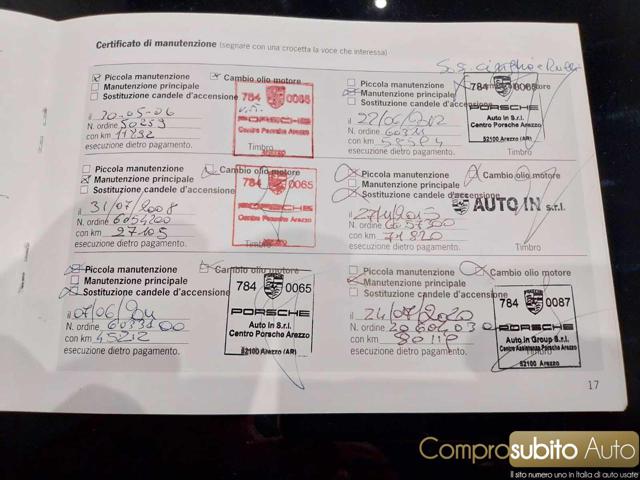 Certificato di manutenzione (segnare con una crocetta la voce che interessa)
Piccola manutenzione
Cambio olio motore
Manutenzione principale
Sostituzione candele d'accensione
784 0065
PORSCHE
Centro Porsche Arezzo
AREZZO
il 20-05-06
N. ordine 50259
con km 11232
esecuzione dietro pagamento.
Timbro
Piccola manutenzione
Cambio olio motore
Manutenzione principale
Sostituzione candele d'accensione
784 0065
PORSCHE
Centro Porsche Arezzo
il 31/07/2008
N. ordine 6054200
con km 27105
esecuzione dietro pagamento.
Timbro
Piccola manutenzione
Cambio olio motore
Manutenzione principale
Sostituzione candele d'accensione
784 0065
PORSCHE
Auto in S.r.l.
Centro Porsche Arezzo
52100 Arezzo (AR)
il 07/06/
N. ordine 6033100
con km 45212
esecuzione dietro pagamento.
Piccola manutenzione
Cambio olio motore
Manutenzione principale
Sostituzione candele d'accensione
784 0065
PORSCHE
Auto in S.r.l.
Centro Porsche Arezzo
52100 Arezzo (AR)
il 22/06/2012
N. ordine
con km
esecuzione dietro pagamento.
Timbro
Piccola manutenzione
Cambio olio motore
Manutenzione principale
Sostituzione candele d'accensione
AUTO IN s.r.l.
il
N. ordine 6057300
con km 71820
esecuzione dietro pagamento.
Timbro
Piccola manutenzione
Cambio olio motore
Manutenzione principale
Sostituzione candele d'accensione
784 0087
PORSCHE
Auto in Group S.r.l.
Centro Assistenza Porsche Arezzo
52100 Arezzo
il 24/07/2020
N. ordine 20604030
con km 80119
esecuzione dietro pagamento.
Timbro
17
Comprosubito Auto
Il sito numero uno in Italia di auto usate